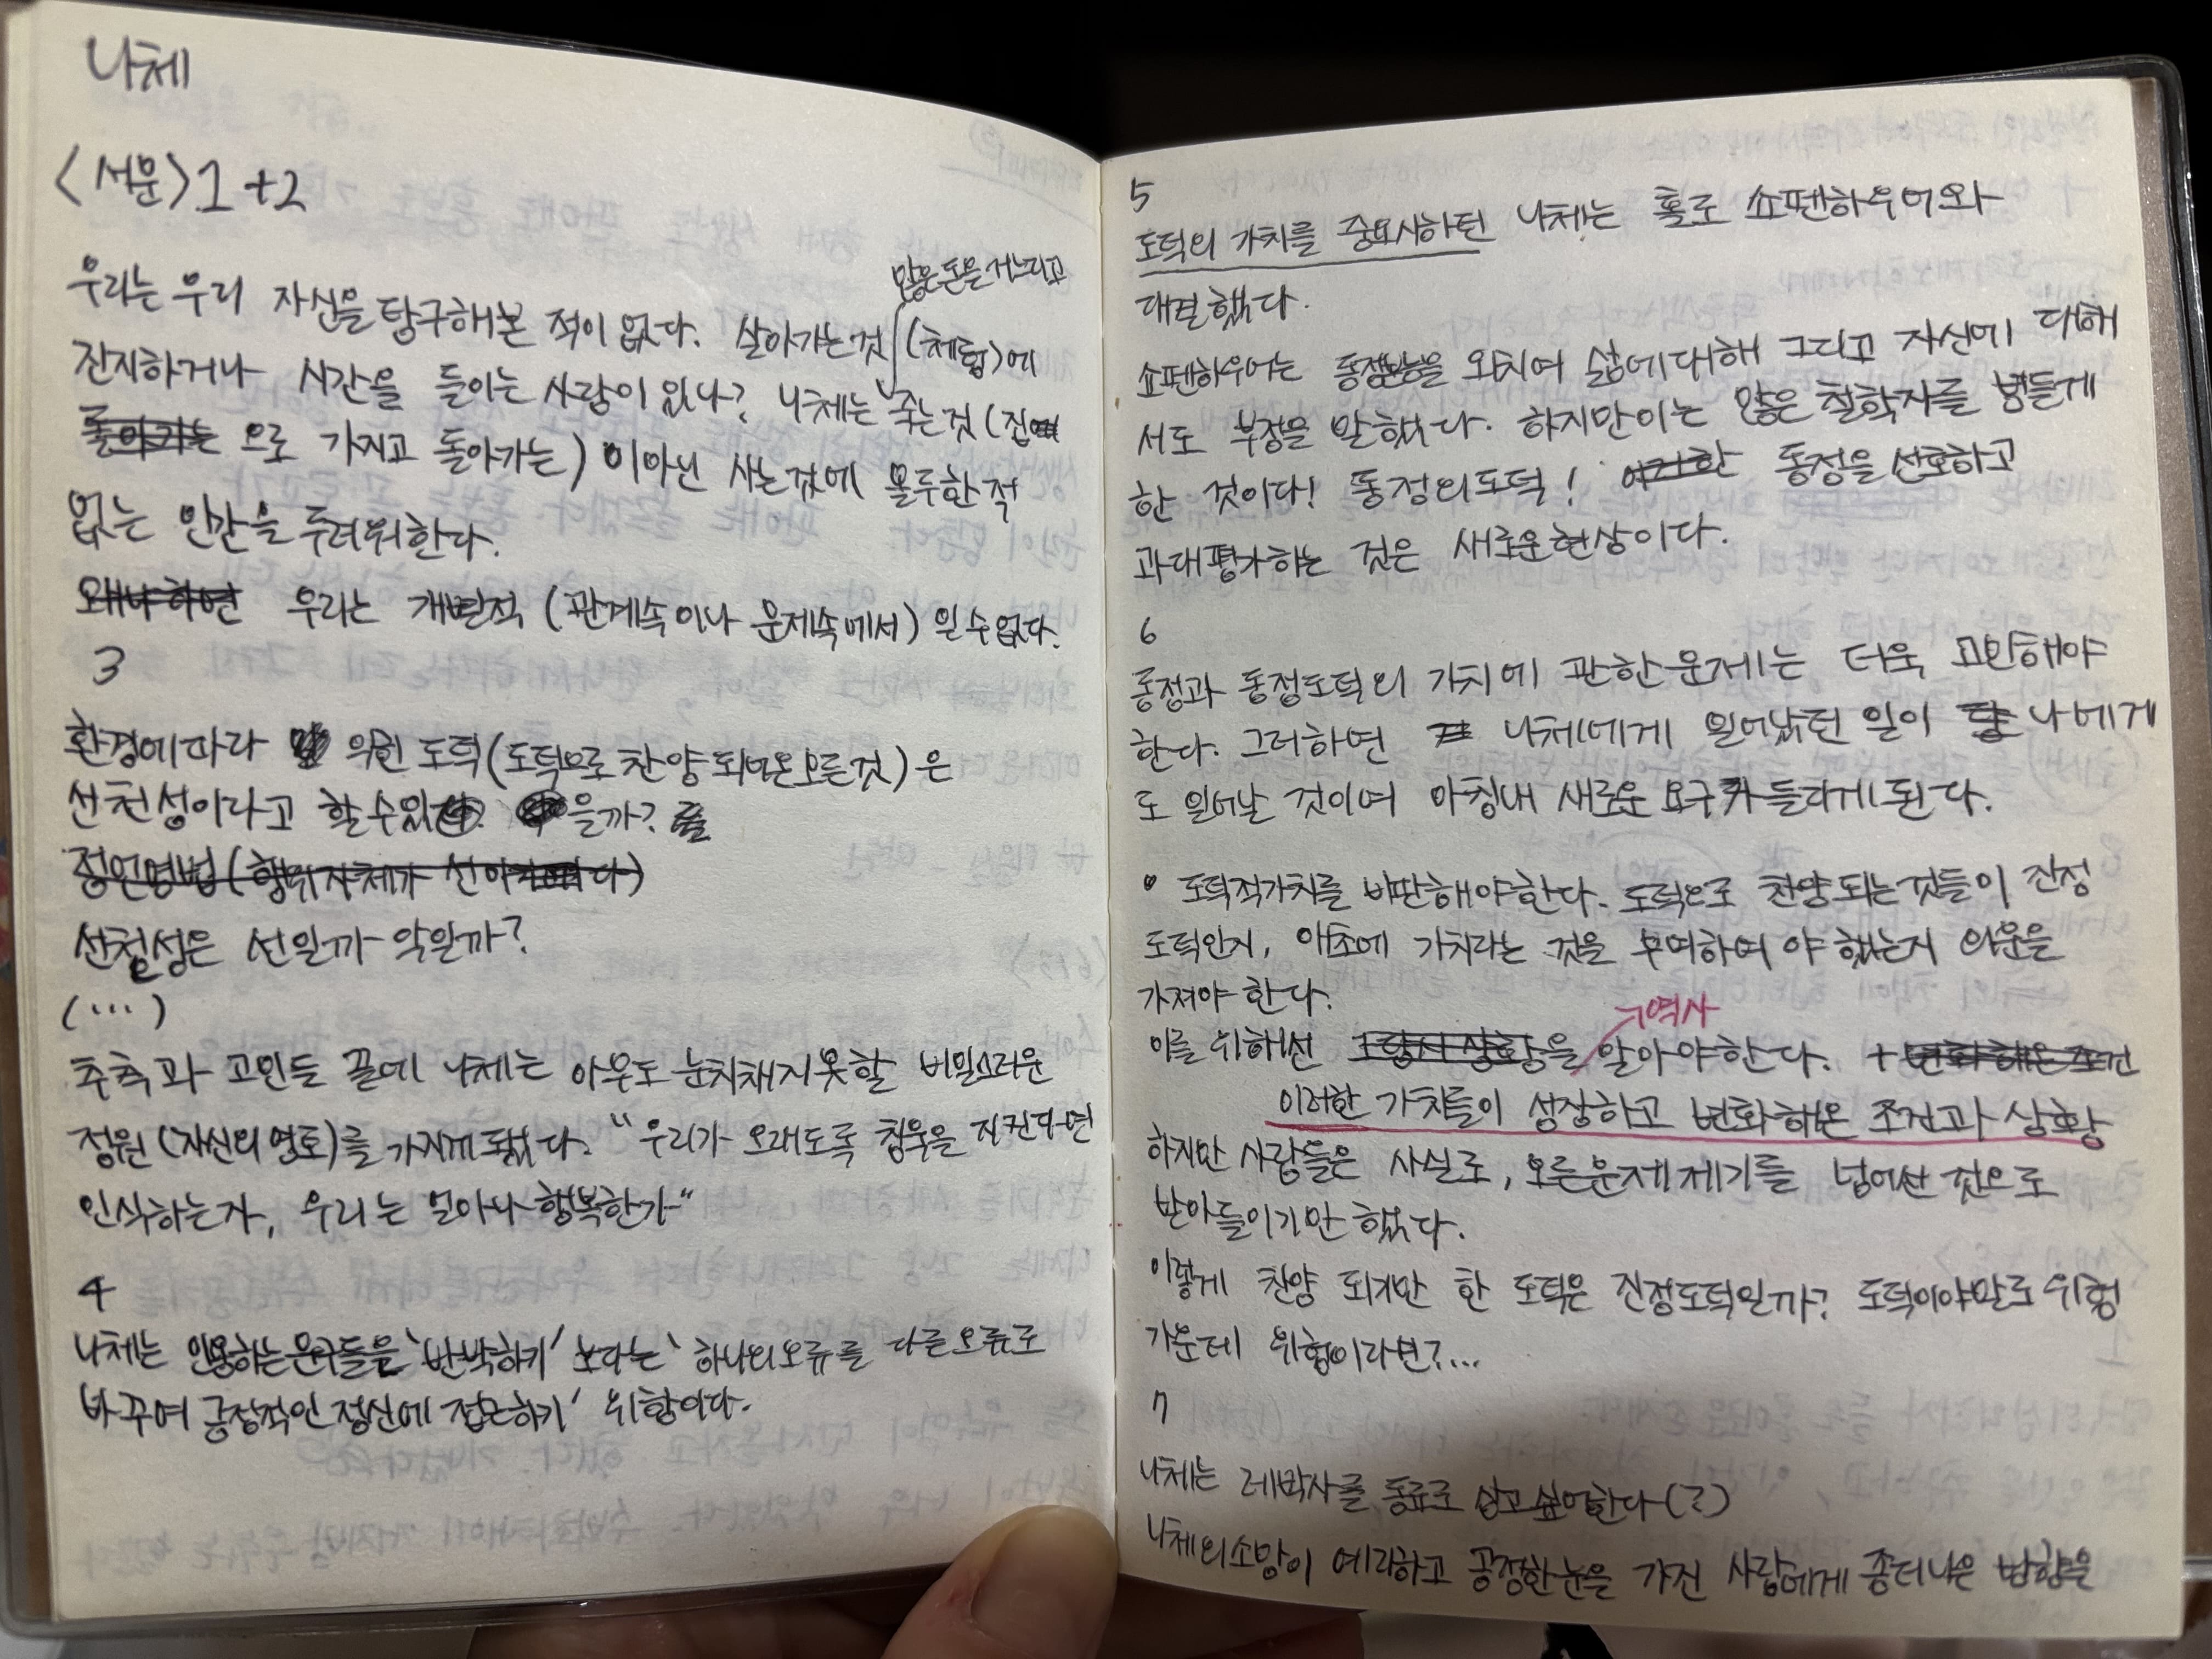 니체
<서문> 1+2
우리는 우리 자신을 탐구해본 적이 없다. 살아가는 것 (체험)에
많은 돈을 거느리고
진지하거나 시간을 들이는 사람이 있나? 니체는 죽는 것 (집
돌아가는 으로 가지고 돌아가는) 이 아닌 사는 것에 몰두한 적
없는 인간을 두려워한다.
왜냐하면 우리는 개별적 (관계속이나 문제속에서) 일 수 없다.
3
환경에 따라 의한 도덕(도덕으로 찬양되어온 모든 것)은
선천성이라고 할 수 있 을까?
정언명법(행위 자체가 선이 다)
선천성은 선일까 악일까?
(...)
추측과 고민들 끝에 니체는 아무도 눈치채지 못할 비밀스러운
정원(자신의 영토)를 가지게 됐다. "우리가 오래도록 침묵을 지킨다면
인식하는 자, 우리는 얼마나 행복한가"
4
니체는 인용하는 문구들을 '반박하기' 보다는 '하나의 오류를 다른 오류로
바꾸며 긍정적인 정신에 접근하기' 위함이다.
5
도덕의 가치를 중요시하던 니체는 홀로 쇼펜하우어와
대결했다.
쇼펜하우어는 외치며 삶에 대해 그리고 자신에 대해
서도 부정을 말했다. 하지만 이는 많은 철학자를 병들게
한 것이다! 동정의 도덕! 이러한 동정을 선호하고
과대평가하는 것은 새로운 현상이다.
6
동정과 동정도덕의 가치에 관한 문제는 더욱 고민해야
한다. 그러하면 니체에게 일어났던 일이 나에게
도 일어날 것이며 마침내 새로운 요구가 들리게 된다.
• 도덕적 가치를 비판해야 한다. 도덕으로 찬양되는 것들이 진정
도덕인지, 애초에 가치라는 것을 부여하여야 했는지 의문을
가져야 한다.
역사
이를 위해선 그 당시 상황을 알아야 한다. + 변화해온 조건
이러한 가치들이 성장하고 변화해온 조건과 상황
하지만 사람들은 사실로, 모든 문제 제기를 넘어선 것으로
받아들이기만 했다.
이렇게 찬양 되기만 한 도덕은 진정 도덕일까? 도덕이야말로 위험
가운데 위험이라면?...
7
니체는 레 박사를 동료로 삼고 싶어한다(?)
니체의 소망이 예리하고 공정한 눈을 가진 사람에게 좀 더 나은 방향을